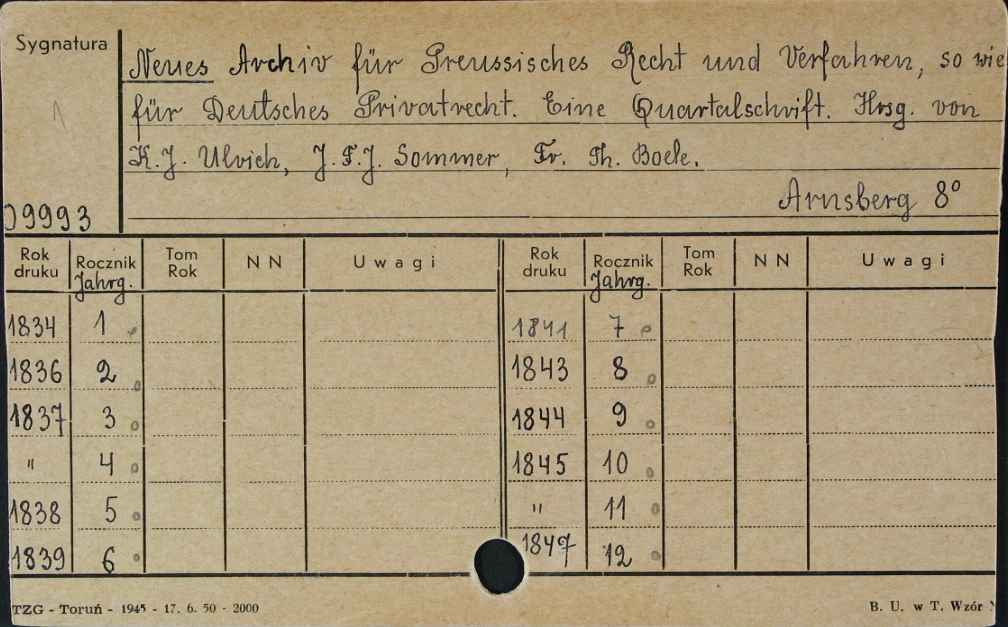 Sygnatura
Neues Archiv für Preussisches Recht und Verfahren, so wie
für Deutsches Privatrecht. Eine Quartalschrift. Hrsg. von
K.J. Ulrich, J.F.J. Sommer, Fr. Th. Boele.
Arnsberg 8°
09993
Rok druku Rocznik Jahrg. Tom Rok N N Uwagi Rok druku Rocznik Jahrg. Tom Rok N N Uwagi
1834 1 1841 7
1836 2 1843 8
1837 3 1844 9
" 4 1845 10
1838 5 " 11
1839 6 1847 12
TZG - Toruń - 1945 - 17. 6. 50 - 2000 B. U. w T. Wzór